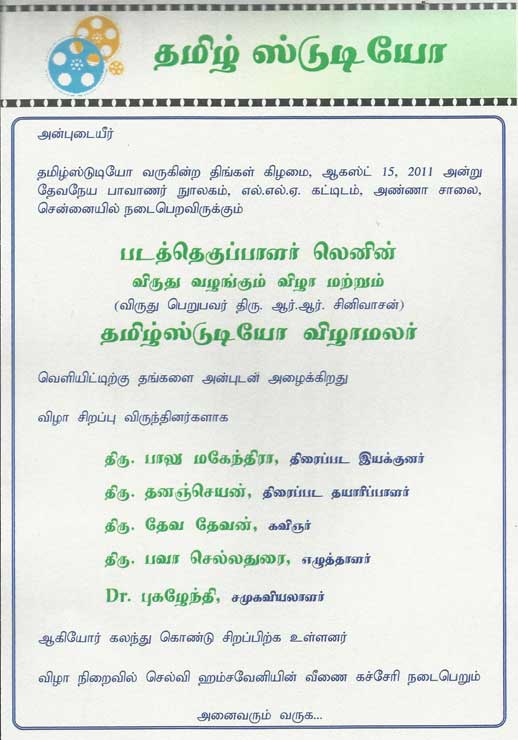 தமிழ் ஸ்டுடியோ
அன்புடையீர்
தமிழ்ஸ்டுடியோ வருகின்ற திங்கள் கிழமை, ஆகஸ்ட் 15, 2011 அன்று
தேவநேய பாவாணர் நூலகம், எல்.எல்.ஏ. கட்டிடம், அண்ணா சாலை,
சென்னையில் நடைபெறவிருக்கும்
படத்தெகுப்பாளர் லெனின்
விருது வழங்கும் விழா மற்றும்
(விருது பெறுபவர் திரு. ஆர்.ஆர். சினிவாசன்)
தமிழ்ஸ்டுடியோ விழாமலர்
வெளியிட்டிற்கு தங்களை அன்புடன் அழைக்கிறது
விழா சிறப்பு விருந்தினர்களாக
திரு. பாலு மகேந்திரா, திரைப்பட இயக்குனர்
திரு. தனஞ்செயன், திரைப்பட தயாரிப்பாளர்
திரு. தேவ தேவன், கவிஞர்
திரு. பவா செல்லதுரை, எழுத்தாளர்
Dr. புகழேந்தி, சமுகவியலாளர்
ஆகியோர் கலந்து கொண்டு சிறப்பிற்க உள்ளனர்
விழா நிறைவில் செல்வி ஹம்சவேனியின் வீணை கச்சேரி நடைபெறும்
அனைவரும் வருக...